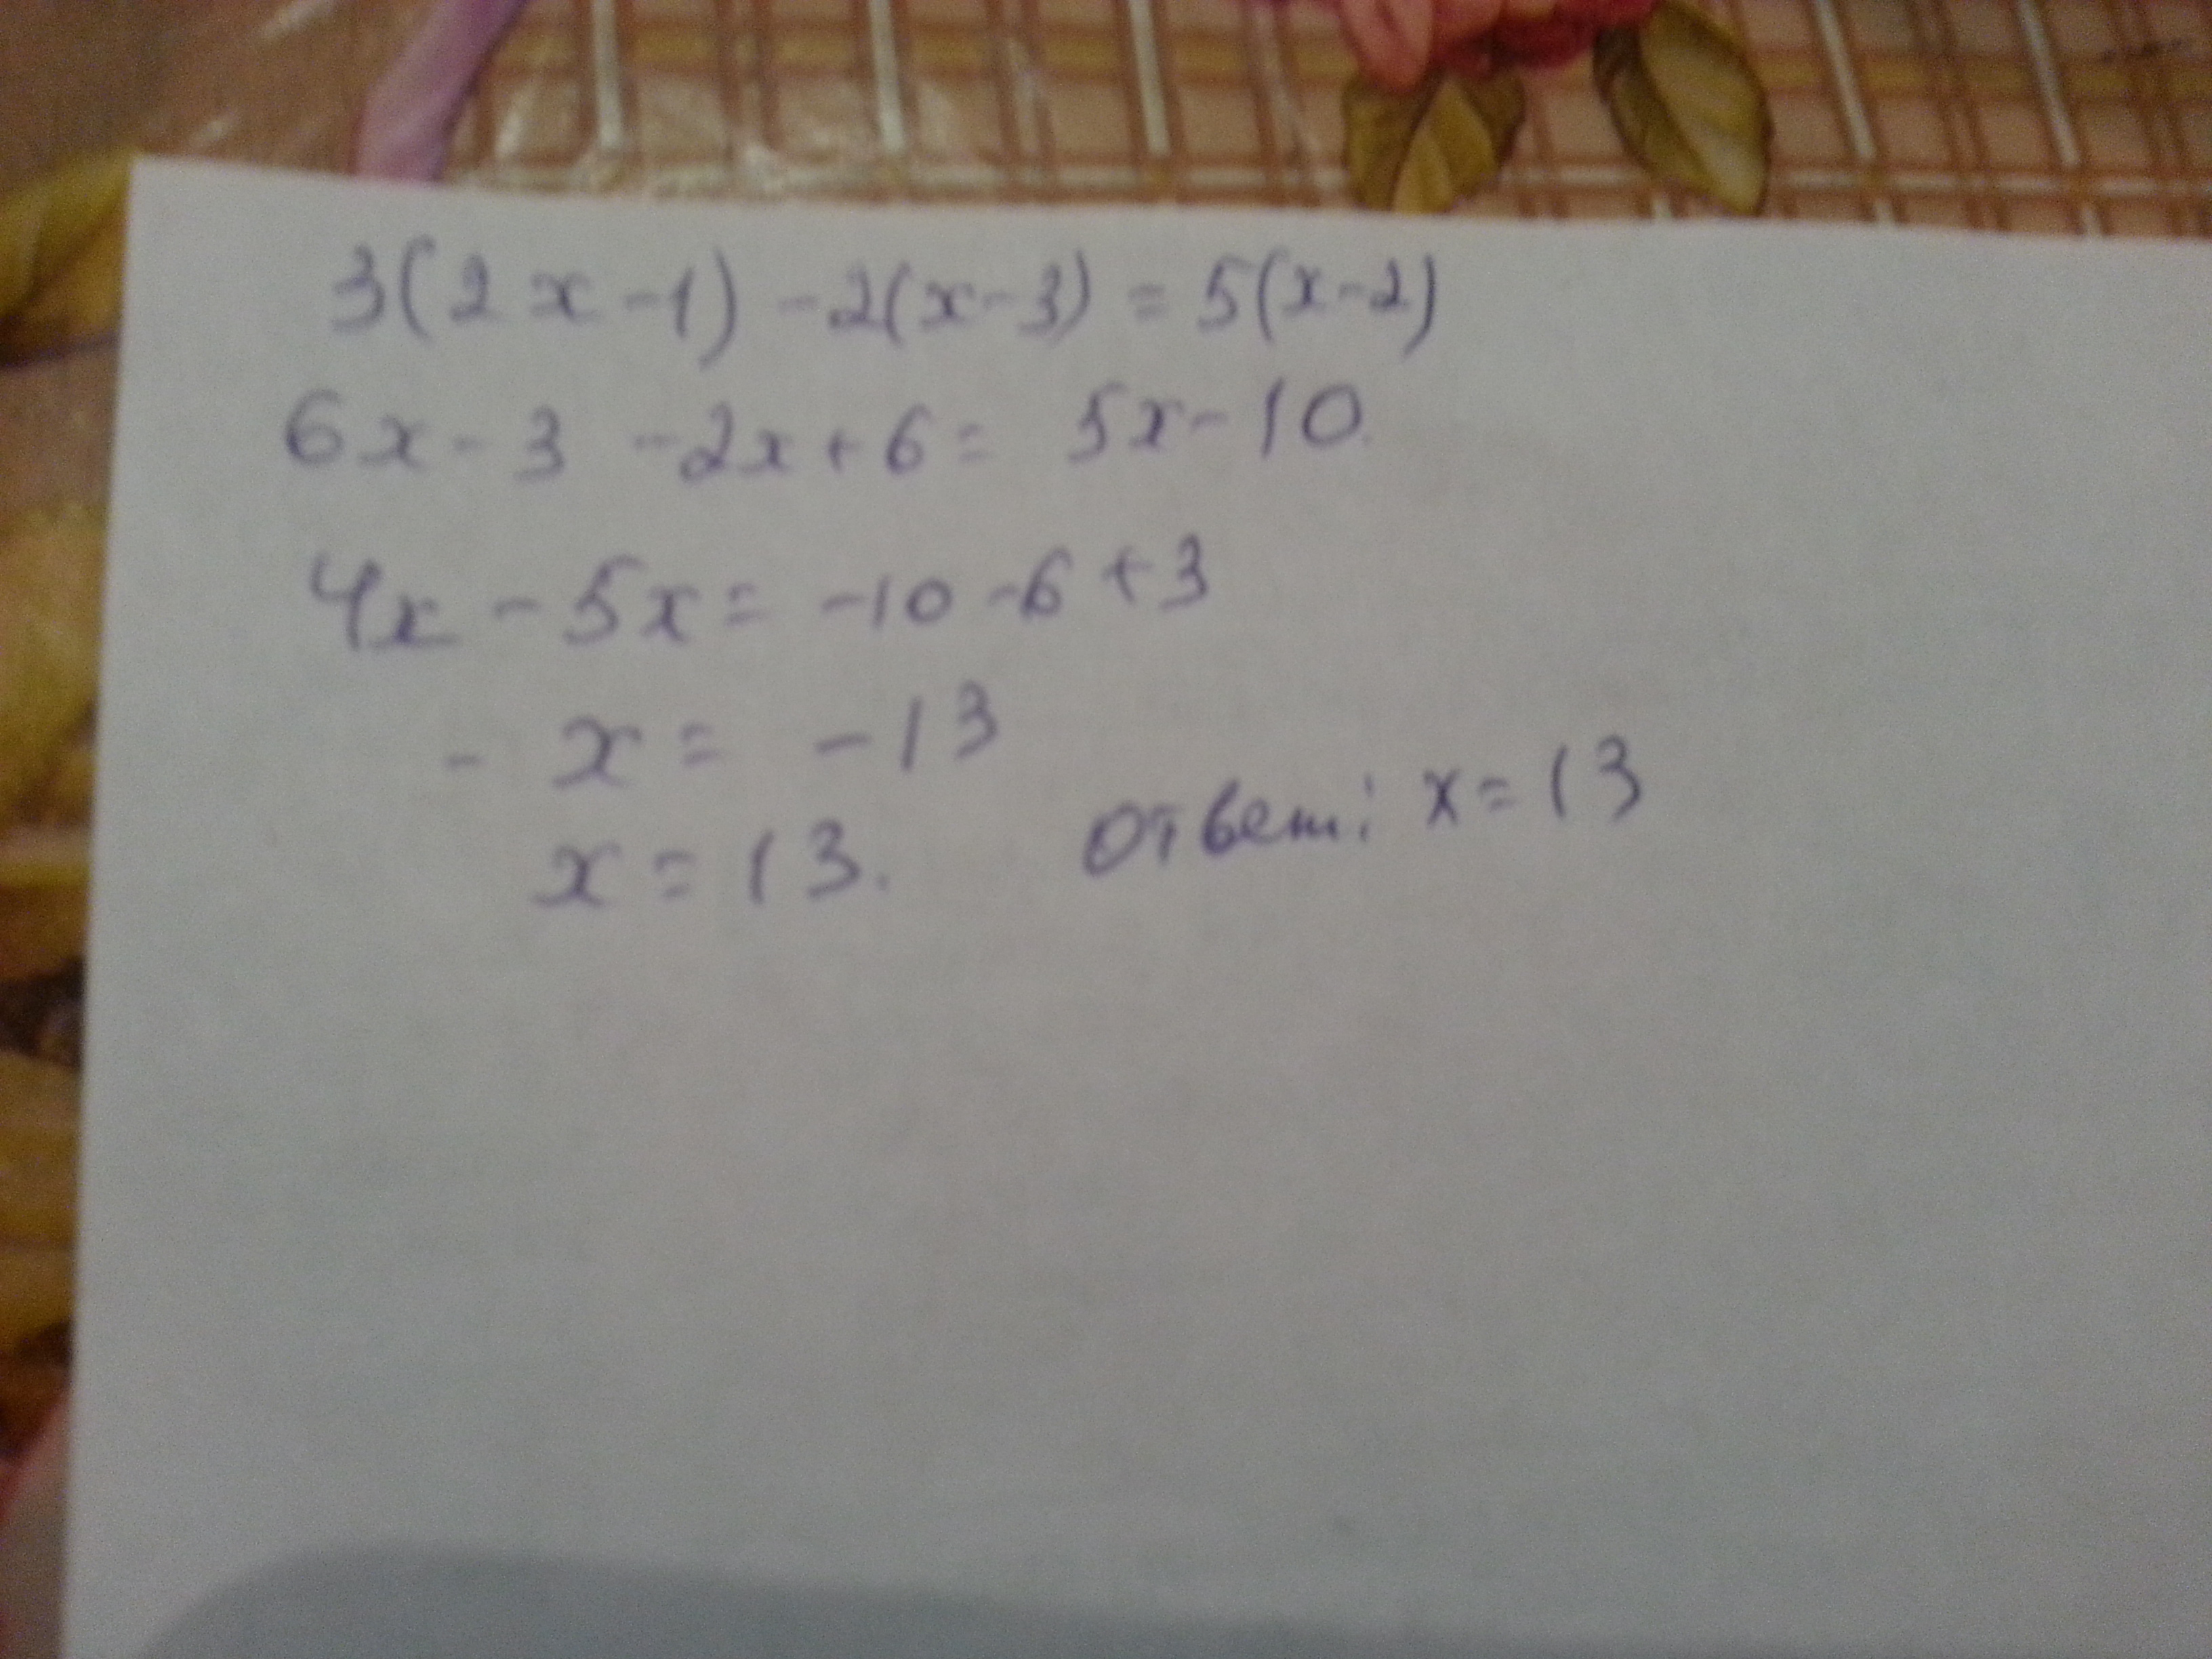 3(2x-1) -2(x-3) = 5(x-2)
6x-3 -2x+6= 5x-10.
4x-5x= -10-6+3
-x= -13
x=13. Ответ: x=13